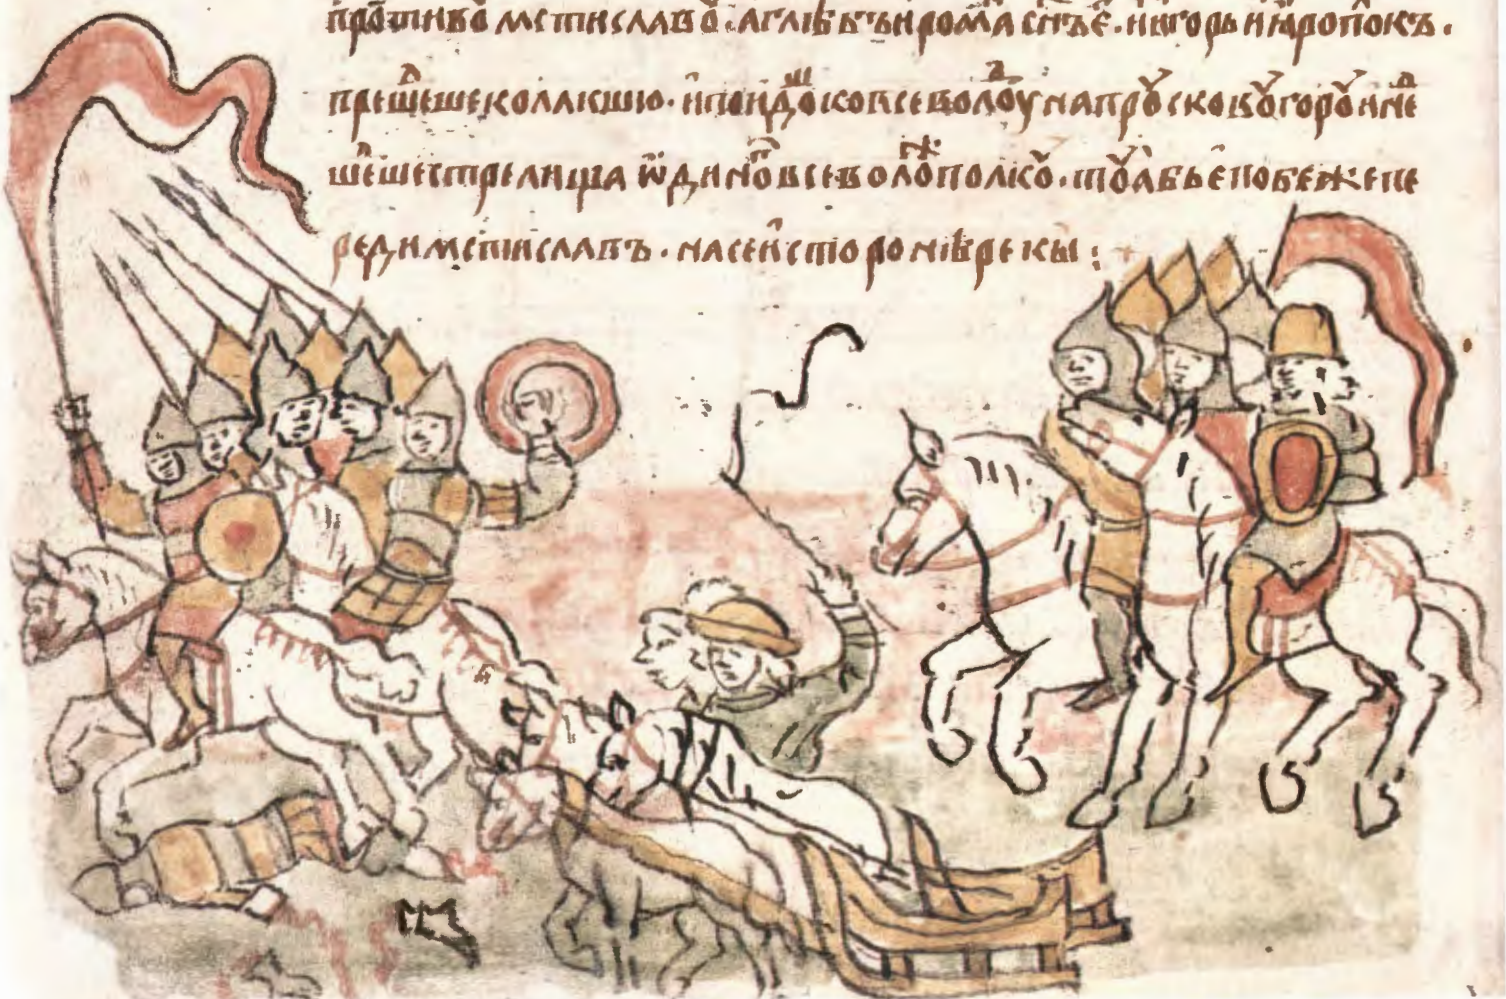 противꙋ мстиславꙋ · а глѣбъ и рома с нъ е · и игорь и ꙗрополкъ ·
преш̾еше колакшю · и поидоша ко всеволоду на прускову гору и не
шедше стрелища ѿ дного всеволожю полку · тогда абье побеже пе
реди мстиславъ · на сеи сторонѣ рекы :